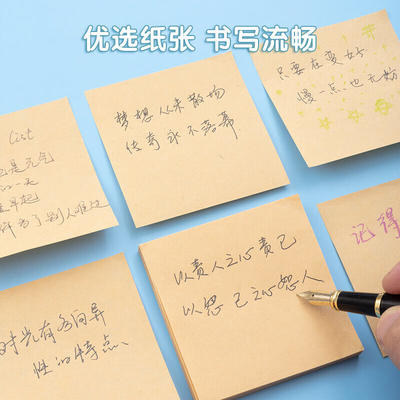 优选纸张 书写流畅
List
是元气
一天
早起
了别人难过
梦想从未散场
传奇永不落幕
只要在变好
慢一点也无妨
时光有各向异
性的特点、
以责人之心责己
以恕己之心恕人
记得